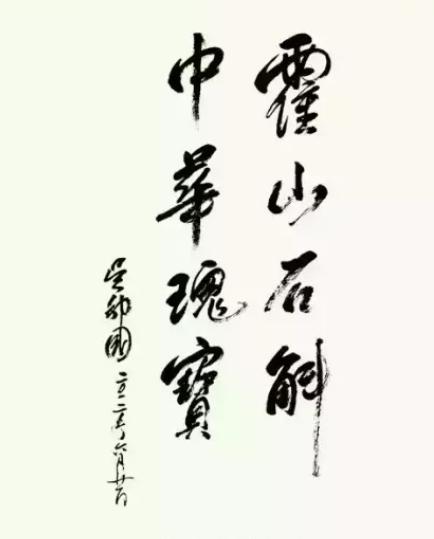 霍山石斛
中華瑰寶
吴邦國 二〇一二年六月